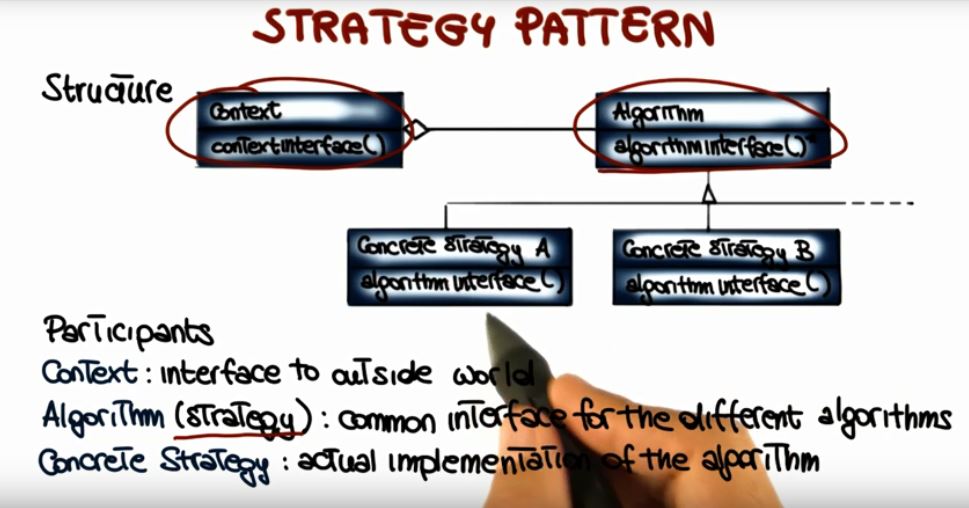 STRATEGY PATTERN
Structure
Context
contextinterface()
Algorithm
algorithm interface()*
Concrete Strategy A
algorithm interface()
Concrete Strategy B
algorithm interface()
Participants
Context: interface to outside world
Algorithm (strategy): common interface for the different algorithms
Concrete Strategy: actual implementation of the algorithm